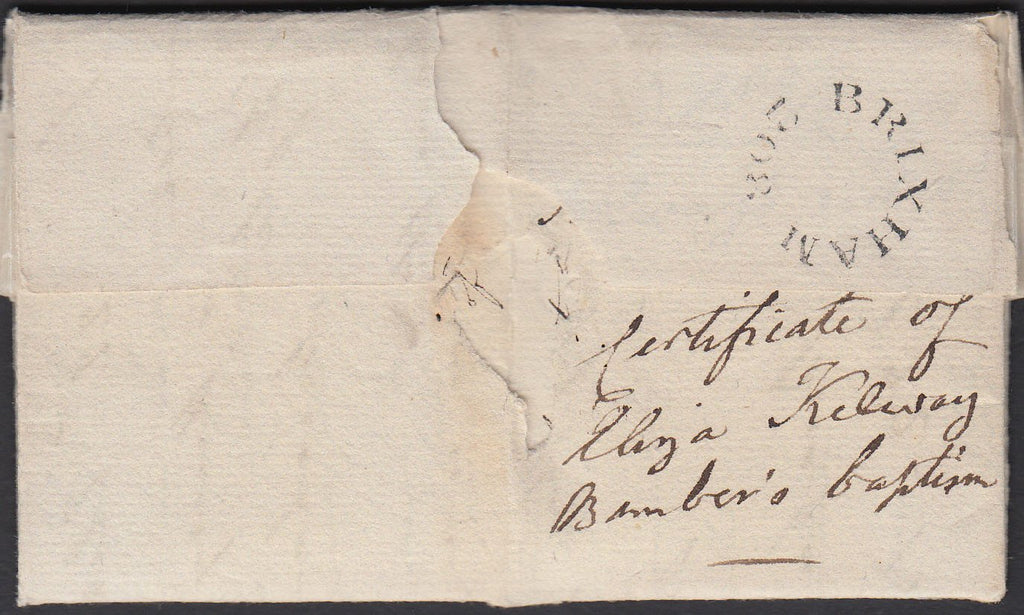 BRIXHAM
Certificate of
Eliza Kelway
Bamber's baptism